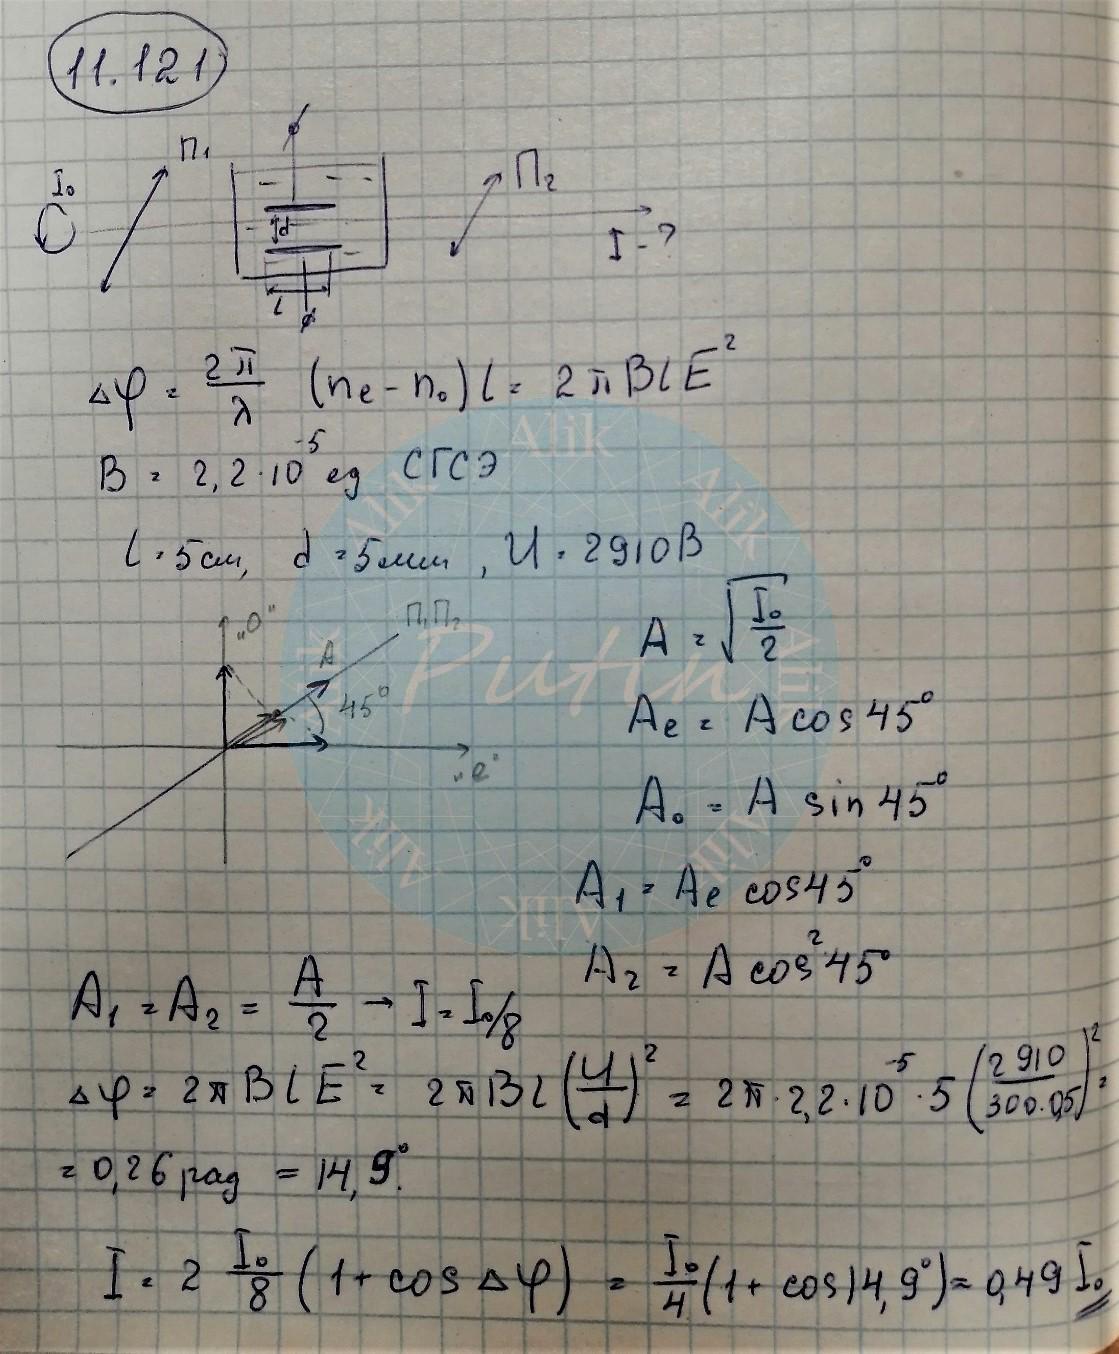 11.121
I₀
П₁
П₂
d
I - ?
l
Δφ = 2π/λ (nₑ - n₀) l = 2πBlE²
B = 2,2·10⁻⁵ ед СГСЭ
l = 5см, d = 5мм, U = 2910В
„О"
П₁П₂
A
45°
„е"
A = √(I₀/2)
Aₑ = A cos 45°
A₀ = A sin 45°
A₁ = Aₑ cos45°
A₂ = A cos²45°
A₁ = A₂ = A/2 → I = I₀/8
Δφ = 2πBlE² = 2πBl(U/d)² = 2π·2,2·10⁻⁵·5(2910/300·0,5)² =
= 0,26 рад = 14,9°.
I = 2 I₀/8 (1 + cos Δφ) = I₀/4 (1 + cos14,9°) = 0,49 I₀
Alik
Alik
Alik
Alik
Alik
Alik
Alik
Alik
Putin